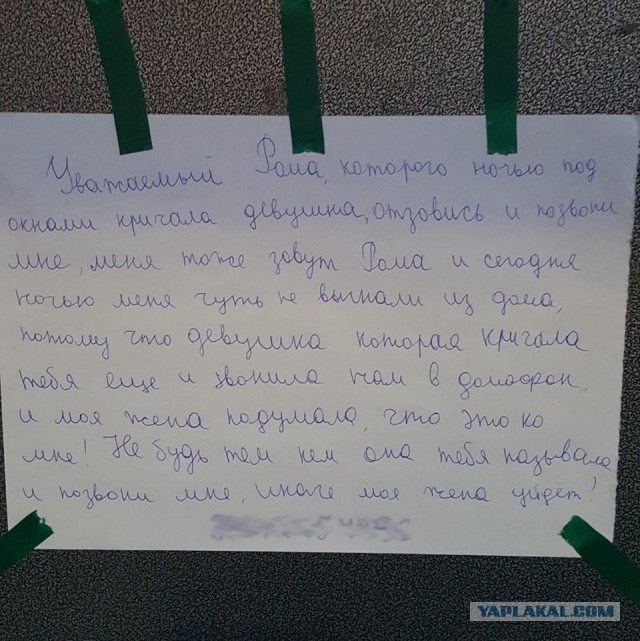 Уважаемый Рома, которого ночью под
окнами кричала девушка, отзовись и позвони
мне, меня тоже зовут Рома и сегодня
ночью меня чуть не выгнали из дома,
потому что девушка которая кричала
тебя еще и звонила нам в домофон,
и моя жена подумала, что это ко
мне! Не будь тем кем она тебя называла
и позвони мне, иначе моя жена уйдет!
YAPLAKAL.COM